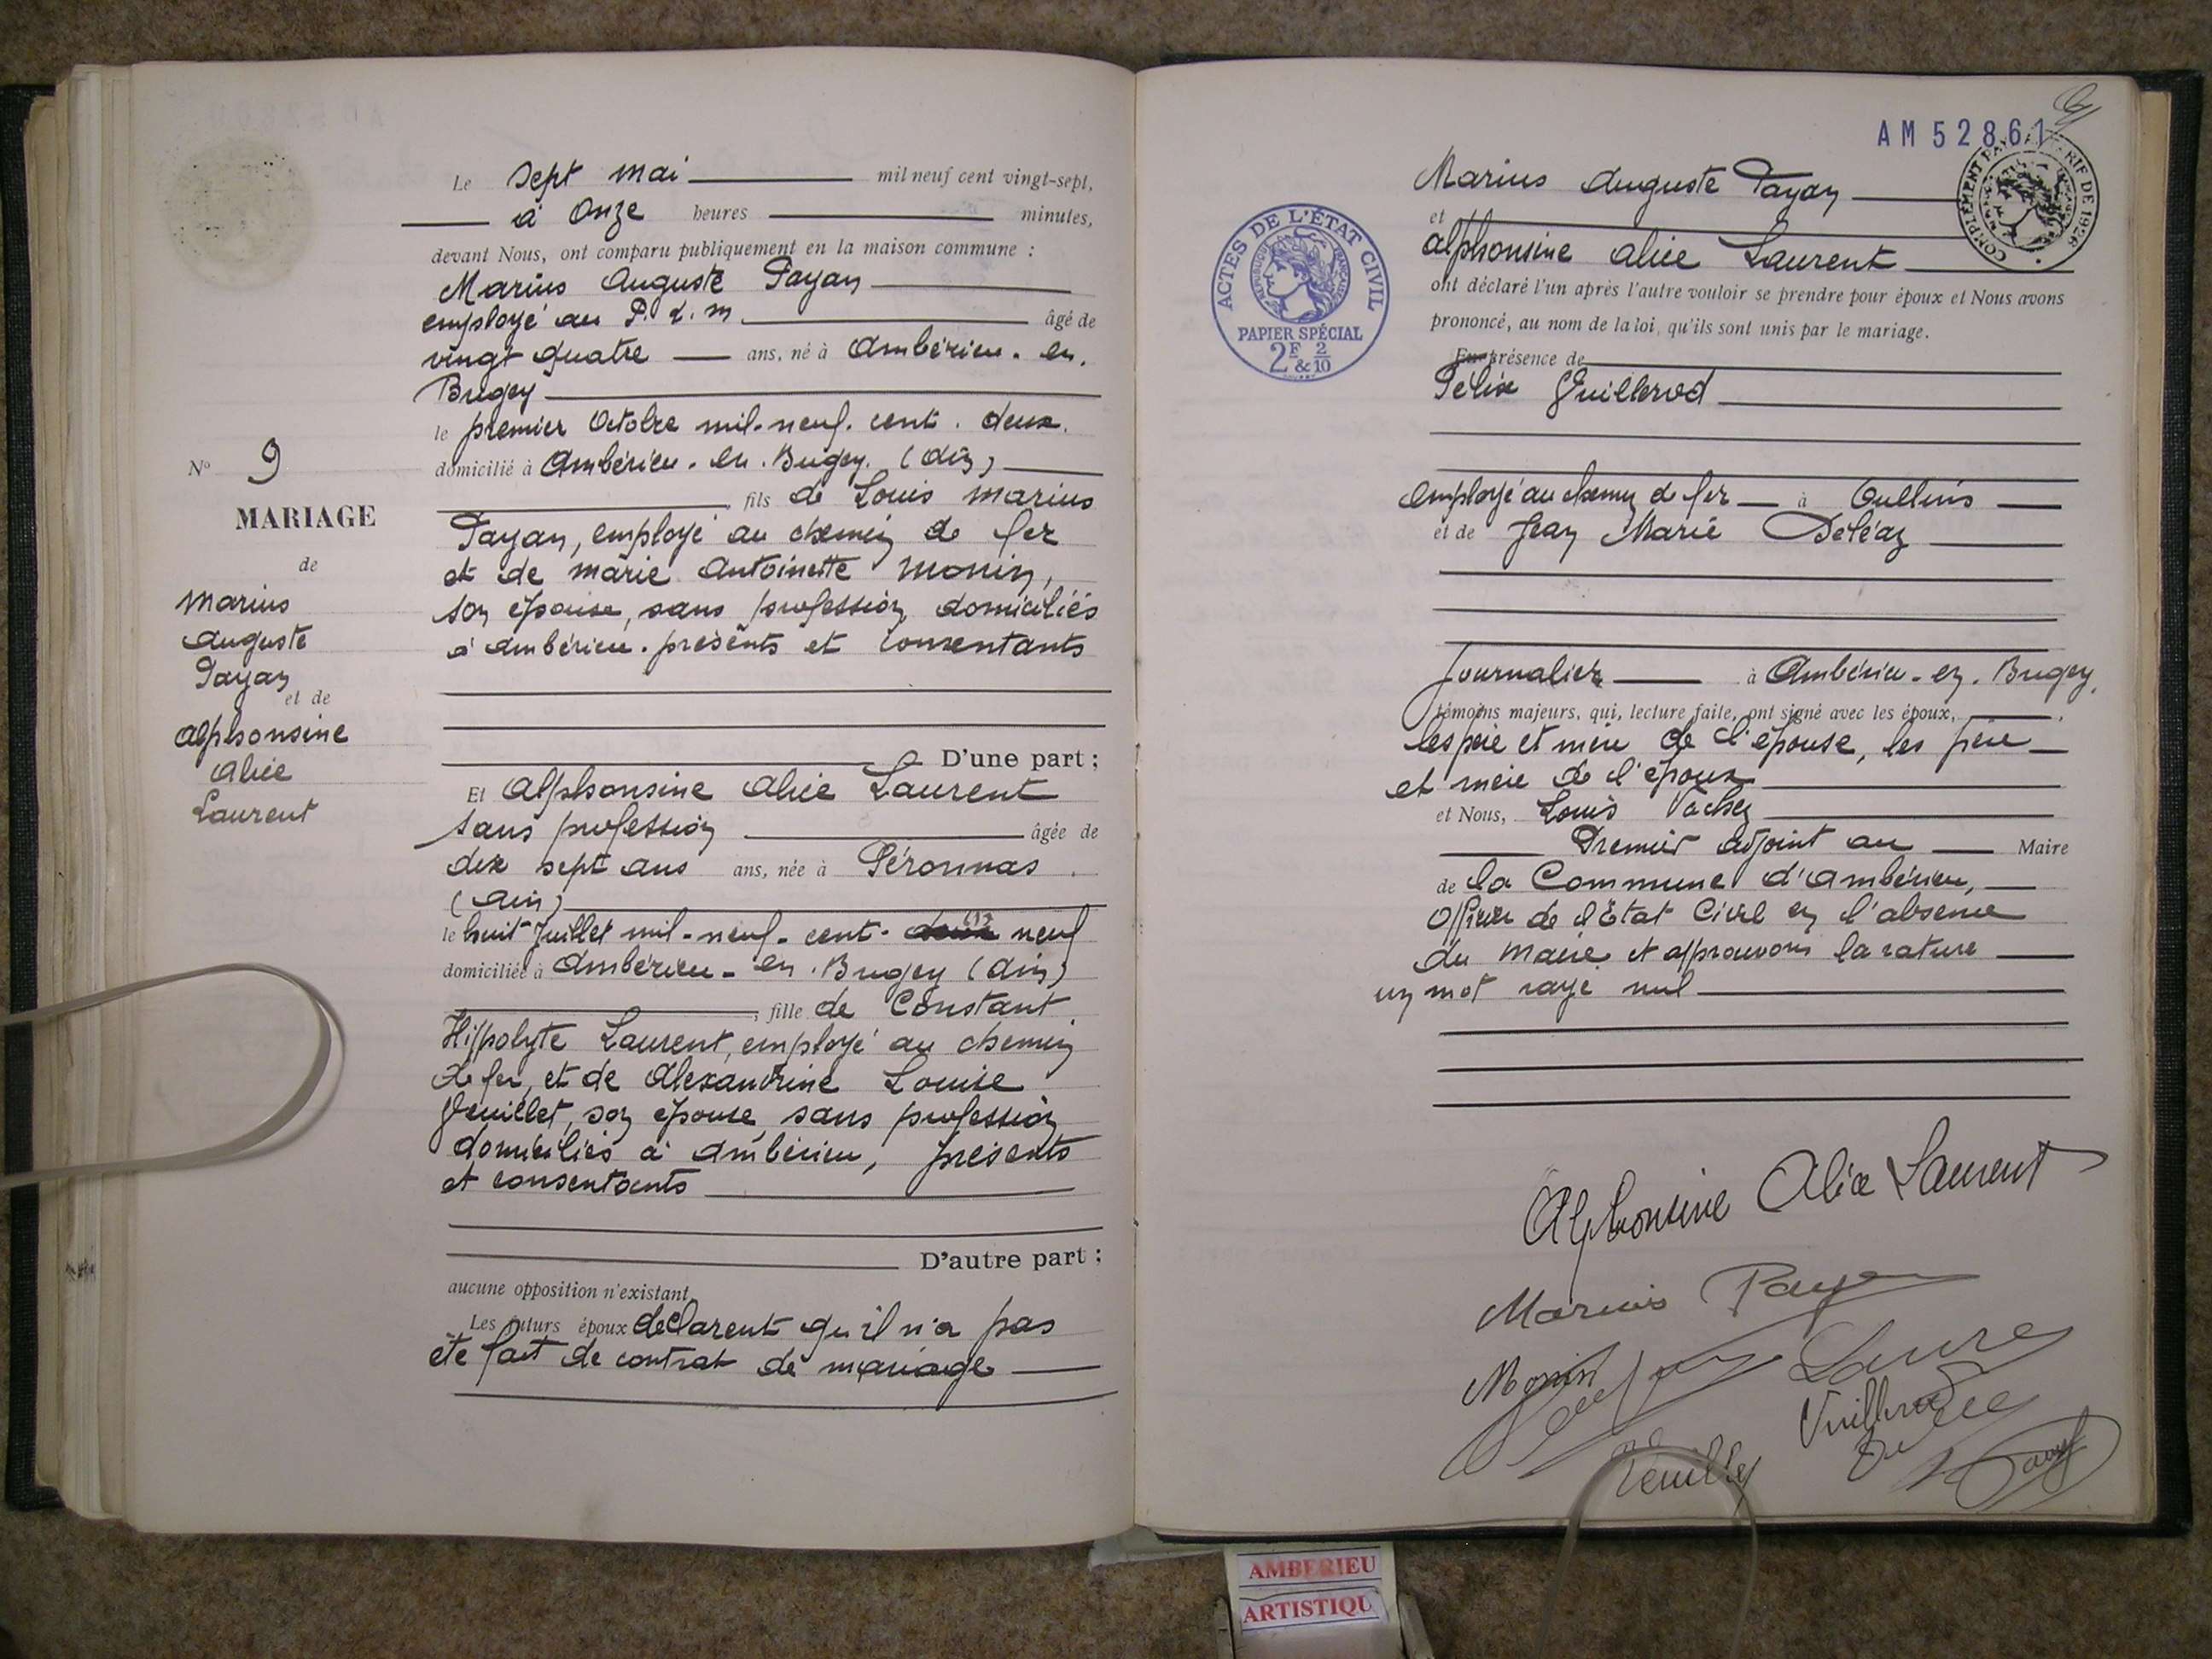 Le sept mai mil neuf cent vingt-sept,
à Onze heures minutes,
devant Nous, ont comparu publiquement en la maison commune :
Marius Auguste Payan
employé au P. L. M. âgé de
vingt quatre ans, né à Ambérieu. en.
Bugey
le premier Octobre mil-neuf. cent. deux.
domicilié à Ambérieu. en. Bugey (Ain)
, fils de Louis Marius
Payan, employé au chemin de fer
et de Marie Antoinette Monin,
son épouse, sans profession, domiciliés
à Ambérieu. présents et consentants
D'une part ;
N° 9
MARIAGE
de
Marius
Auguste
Payan
et de
Alphonsine
Alice
Laurent
Et Alphonsine Alice Laurent
sans profession âgée de
dix sept ans ans, née à Péronnas
(Ain)
le huit Juillet mil-neuf-cent- neuf
domiciliée à Ambérieu-en.Bugey (Ain)
, fille de Constant
Hippolyte Laurent, employé au chemin
de fer, et de Alexandrine Louise
son épouse sans profession
domiciliés à Ambérieu, présents
et consentants
D'autre part ;
aucune opposition n'existant.
Les futurs époux déclarent qu'il n'a pas
été fait de contrat de mariage
AM 52861
COMPLÉMENT TARIF DE 1926
Marius Auguste Payan
et
Alphonsine Alice Laurent
ont déclaré l'un après l'autre vouloir se prendre pour époux et Nous avons
prononcé, au nom de la loi, qu'ils sont unis par le mariage.
ACTES DE L'ÉTAT CIVIL
RÉPUBLIQUE FRANÇAISE
PAPIER SPÉCIAL
2F & 2/10
En présence de
Félix Vuillerod
employé au chemin de fer à Oullins
et de Jean Marie Deléaz
Journalier à Ambérieu-en.Bugey,
témoins majeurs, qui, lecture faite, ont signé avec les époux,
les père et mère de l'épouse, les père
et mère de l'époux
et Nous, Louis
Premier adjoint au Maire
de la Commune d'Ambérieu,
Officier de l'État Civil en l'absence
du Maire et approuvons la rature
un mot rayé nul
Alphonsine Alice Laurent
Marius Payan
Monin
AMBERIEU
ARTISTIQU